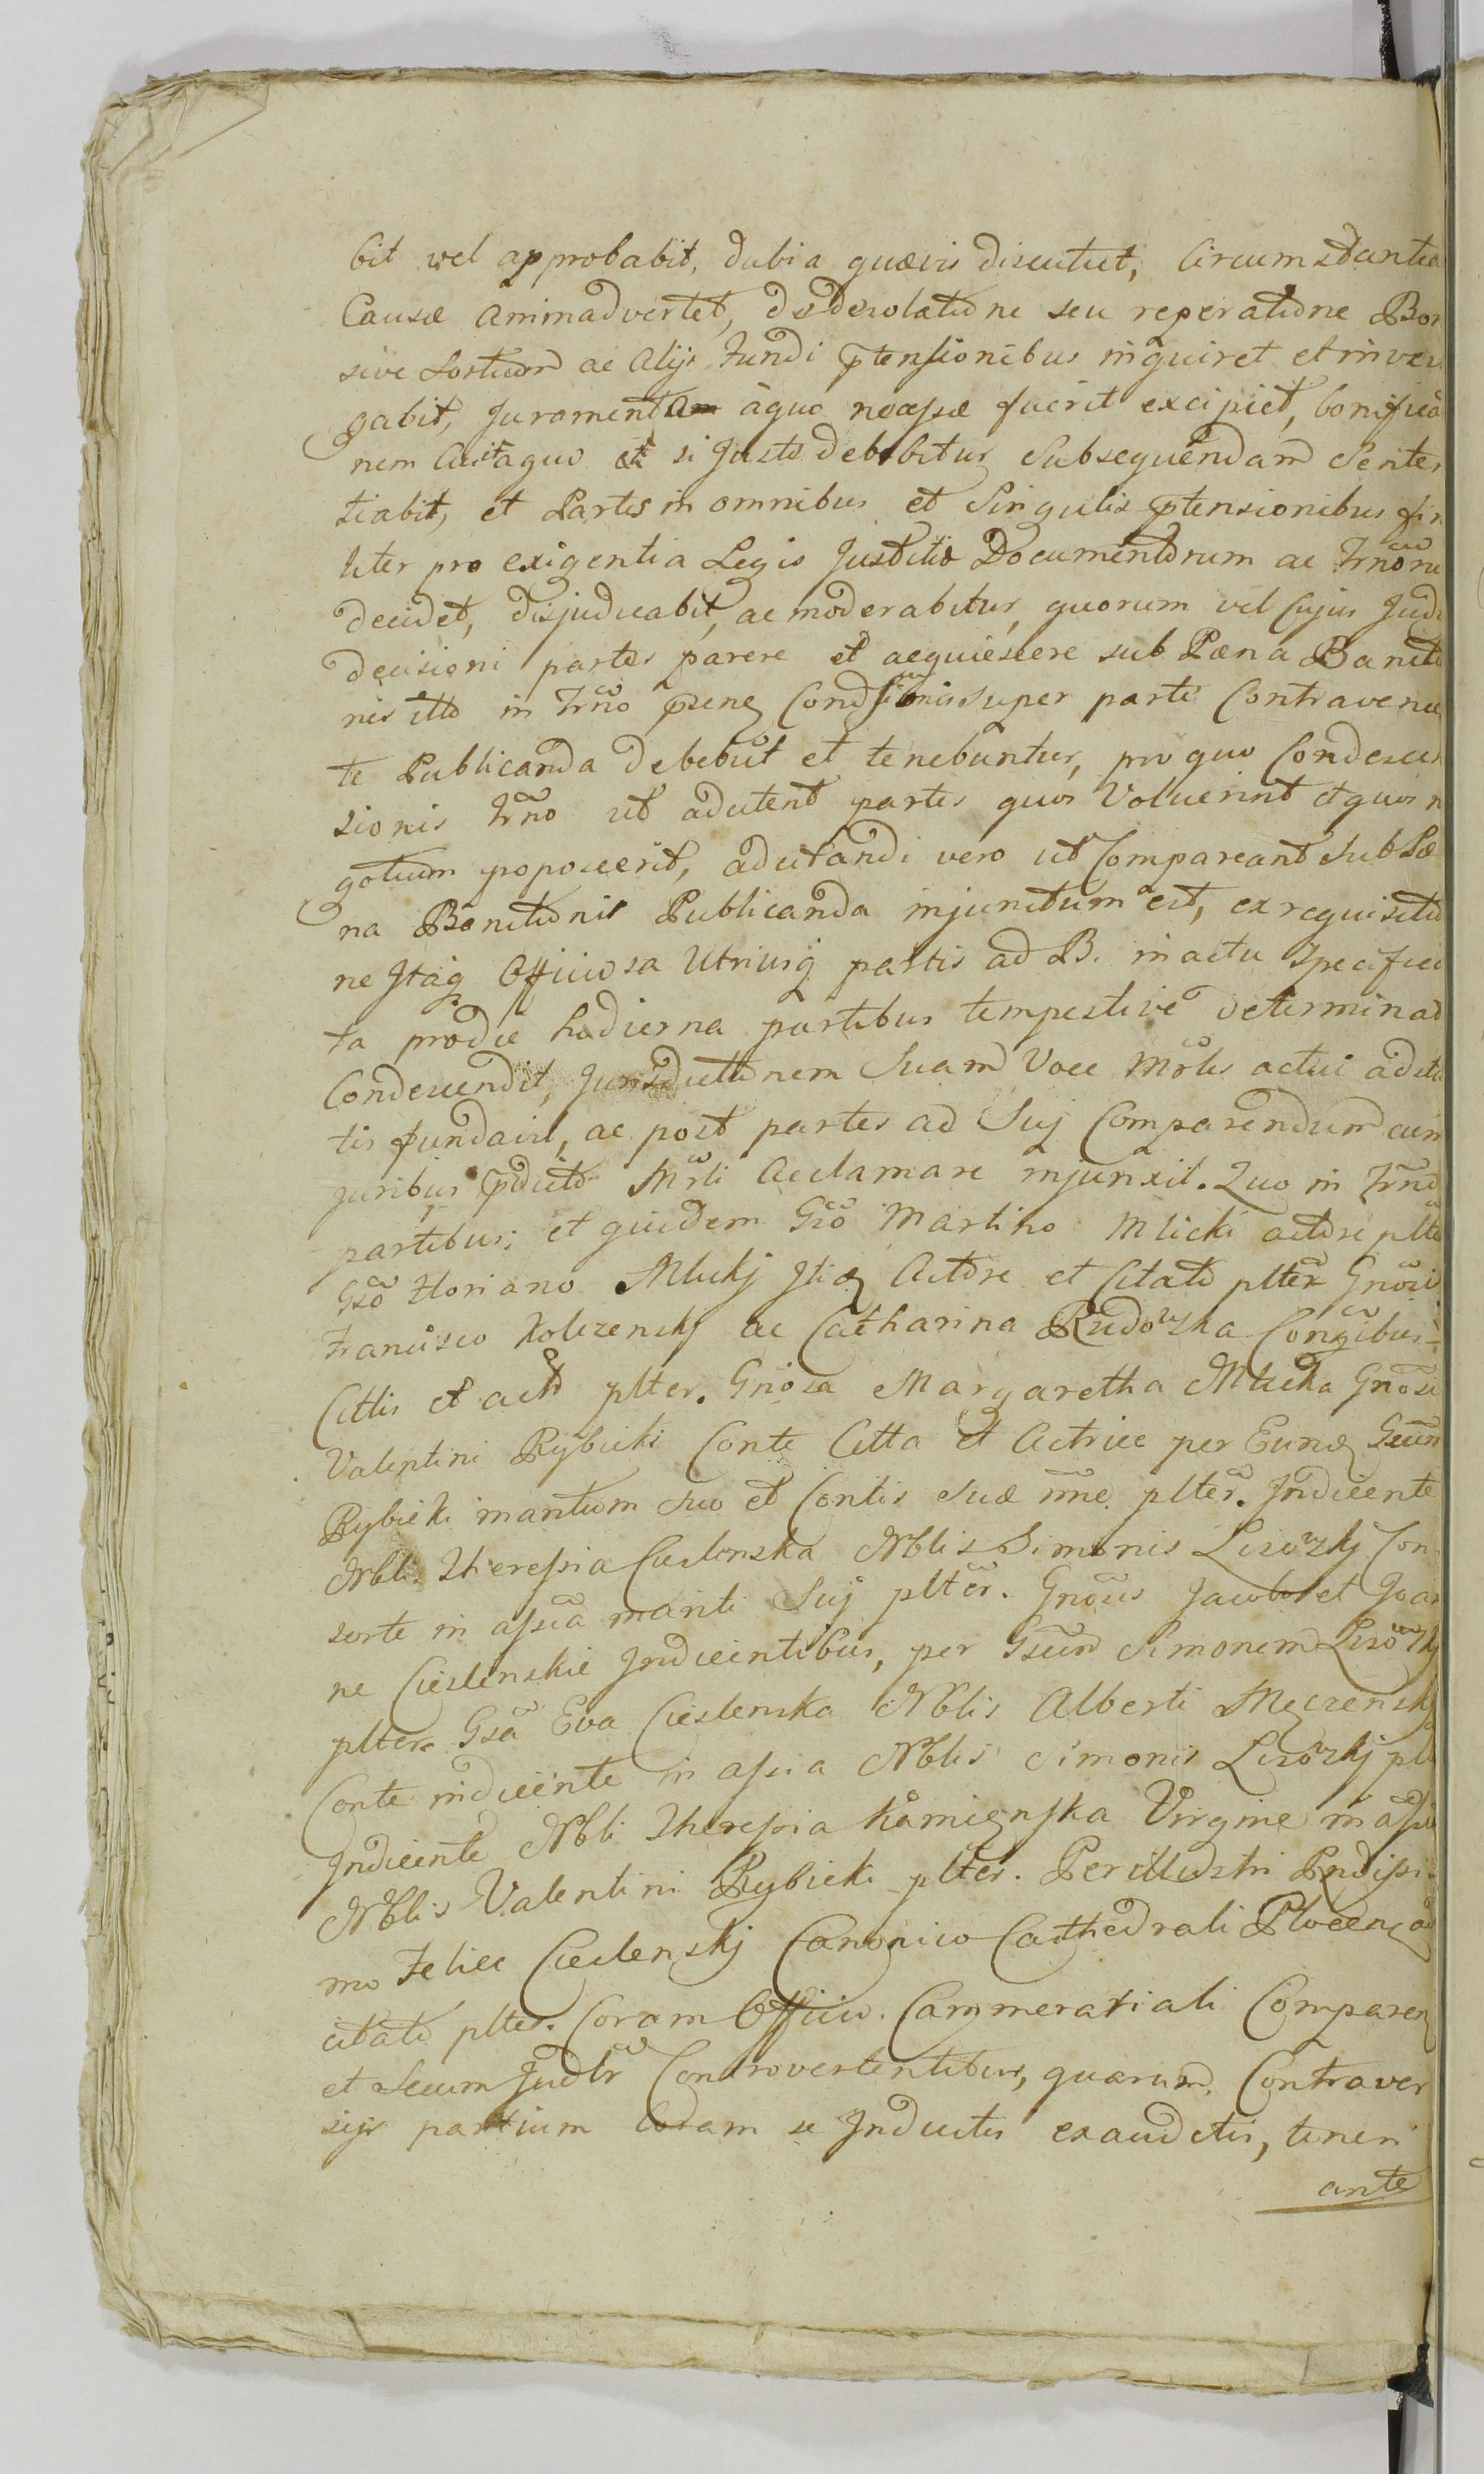 bit vel approbabit, dubia quævis discutiet, Circumstantia
Causæ animadvertet, de desolatione seu reperatione Bon
sive Sortium ac alijs fundi ptensionibus inquiret et inves
gabit, Jurament àquo necessæ fuerit excipiet, bonifica
nem Cui et aquo si Justo debebitur Subsequendam Senten
tiabit, et Partes in omnibus et Singulis ptensionibus fin
liter pro exigentia Legis Justitiæ Documentorum ac Trnoru
decidet, disjudicabit, ac moderabitur, quorum vel Cujus Judi
decisioni partes parere et acquiescere sub Pæna Baniti
nis itto in Trno super parte Contravenien
te Publicanda debebut et tenebuntur, pro quo Condescen
sionis Trno ut adcitent partes quos Voluerint et quos n
gotium poposcerit, adcitandi vero ut Compareant Sub Pæ
na Banitionis Publicanda injunctum est, ex requisitio
ne Itaq Officiosa Utriusq partis ad B. in actu Specifica
ta prodie hodierna partibus tempestive determinat
Condescendit, Jurisdictionem Suam Voce Mrlis actui adcita
tis fundavit, ac post partes ad Sui Comparendum cum
juribus pdicto Mrli Acclamare injunxit. Quo in Trno
partibus; et quidem Gso Martino Mlicki actore plte
Gso Floriano Mlickj Itiq Actore et Citato plter Gnosi
Francisco Kolczenskj ac Catharina Rudowska Congibus
Cittis et acto plter. Gnosa Margaretha Mlicka Gnosi
Valentini Rybicki Conte Citta et Actrice per Eund Gsum
Rybicki maritum suo et Contis suæ nne plter. Indicente
Nbli Theresia Cieslenska Nblis Simonis Lisowskj Con
sorte in assia mariti Suj plter. Gnosis Jacobo et Joan
ne Cieslenskie Indicentibus, per Gsum Simonem Lisowskj
plter Gsa Eva Cieslenska Nblis Alberti Męczenskj
Conte indicente in assia Nblis Simonis Lisowskj plt
Indicente Nbli Theresia Kamięnska Virgine in assia
Nblis Valentini Rybicki plter. Perillustri Rndissi
mo Felice Cieslenskj Canonico Cathedrali Plocen ad
citato plter. Coram Officio Cammerariali Comparen
et Secum Judlr Controvertentibus, quarum Contraver
sijs partium Coram se Inductis exauditis, teneri
ante